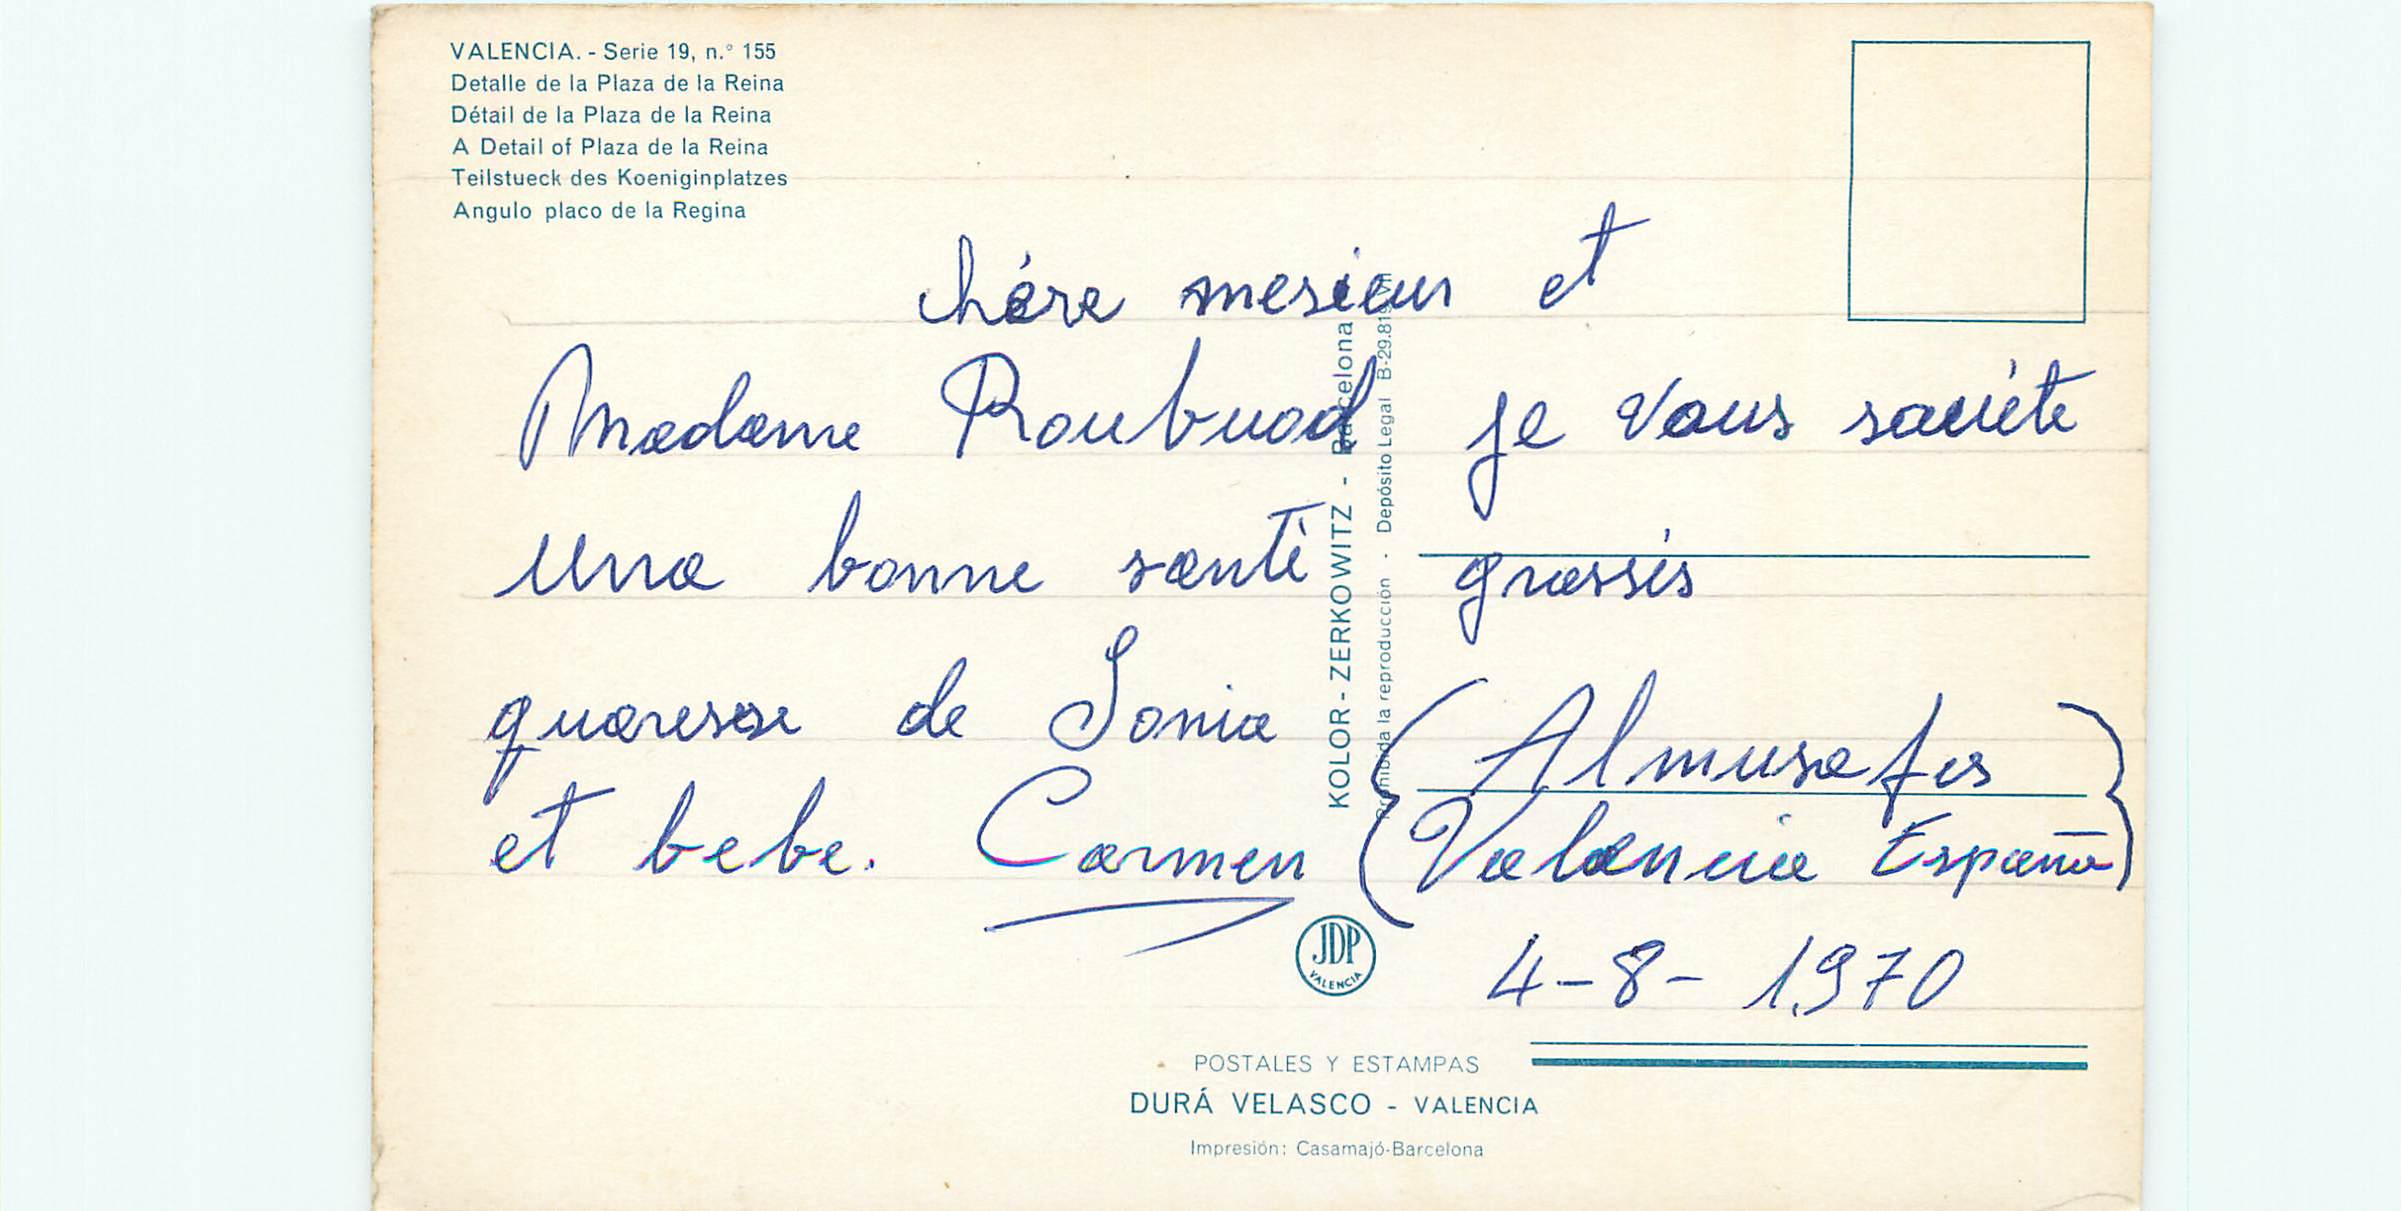 VALENCIA. - Serie 19, n.° 155
Detalle de la Plaza de la Reina
Détail de la Plaza de la Reina
A Detail of Plaza de la Reina
Teilstueck des Koeniginplatzes
Angulo placo de la Regina
chére mesieur et
Madame Roubuod je vous souéte
Una bonne santé grossis
quaresse de Sonia
et bebe. Carmen
(Almusafes)
(Valencia España)
4-8-1.970
KOLOR - ZERKOWITZ - Barcelona
Prohibida la reproducción - Depósito Legal B-29.819
JDP
VALENCIA
POSTALES Y ESTAMPAS
DURÁ VELASCO - VALENCIA
Impresión: Casamajó-Barcelona